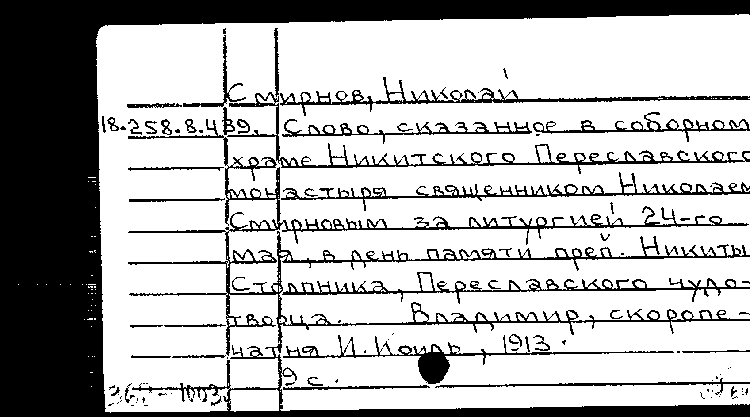 Смирнов, Николай
18.258.8.439. Слово, сказанное в соборном
храме Никитского Переславского
монастыря священником Николаем
Смирновым за литургией 24-го
мая, в день памяти преп. Никиты
Столпника, Переславского чудо-
творца. Владимир, скоропе-
чатня И. Коиль, 1913.
9 с.